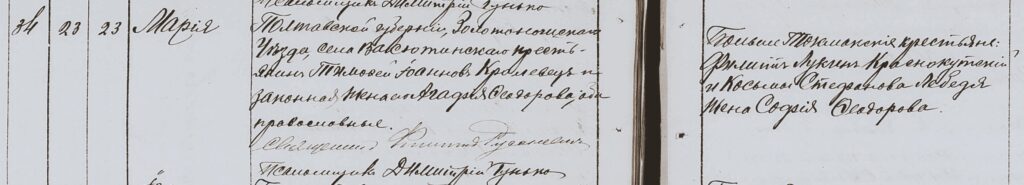 Псаломщикъ Димитрій Гунько
34 23 23 Марія
Полтавской губерніи, Золотоношскаго
уѣзда, села Васютинскаго кресть-
янинъ Тимоѳей Іоанновъ Кролевецъ и
законная жена его Агафія Ѳеодорова, оба
православные.
Священникъ
Псаломщикъ Димитрій Гунько
Больше Токмакскіе крестьяне:
Филиппъ Лукинъ Краснокутскій
и Косьмы Стефанова Лебедя
жена Софія Ѳеодорова.